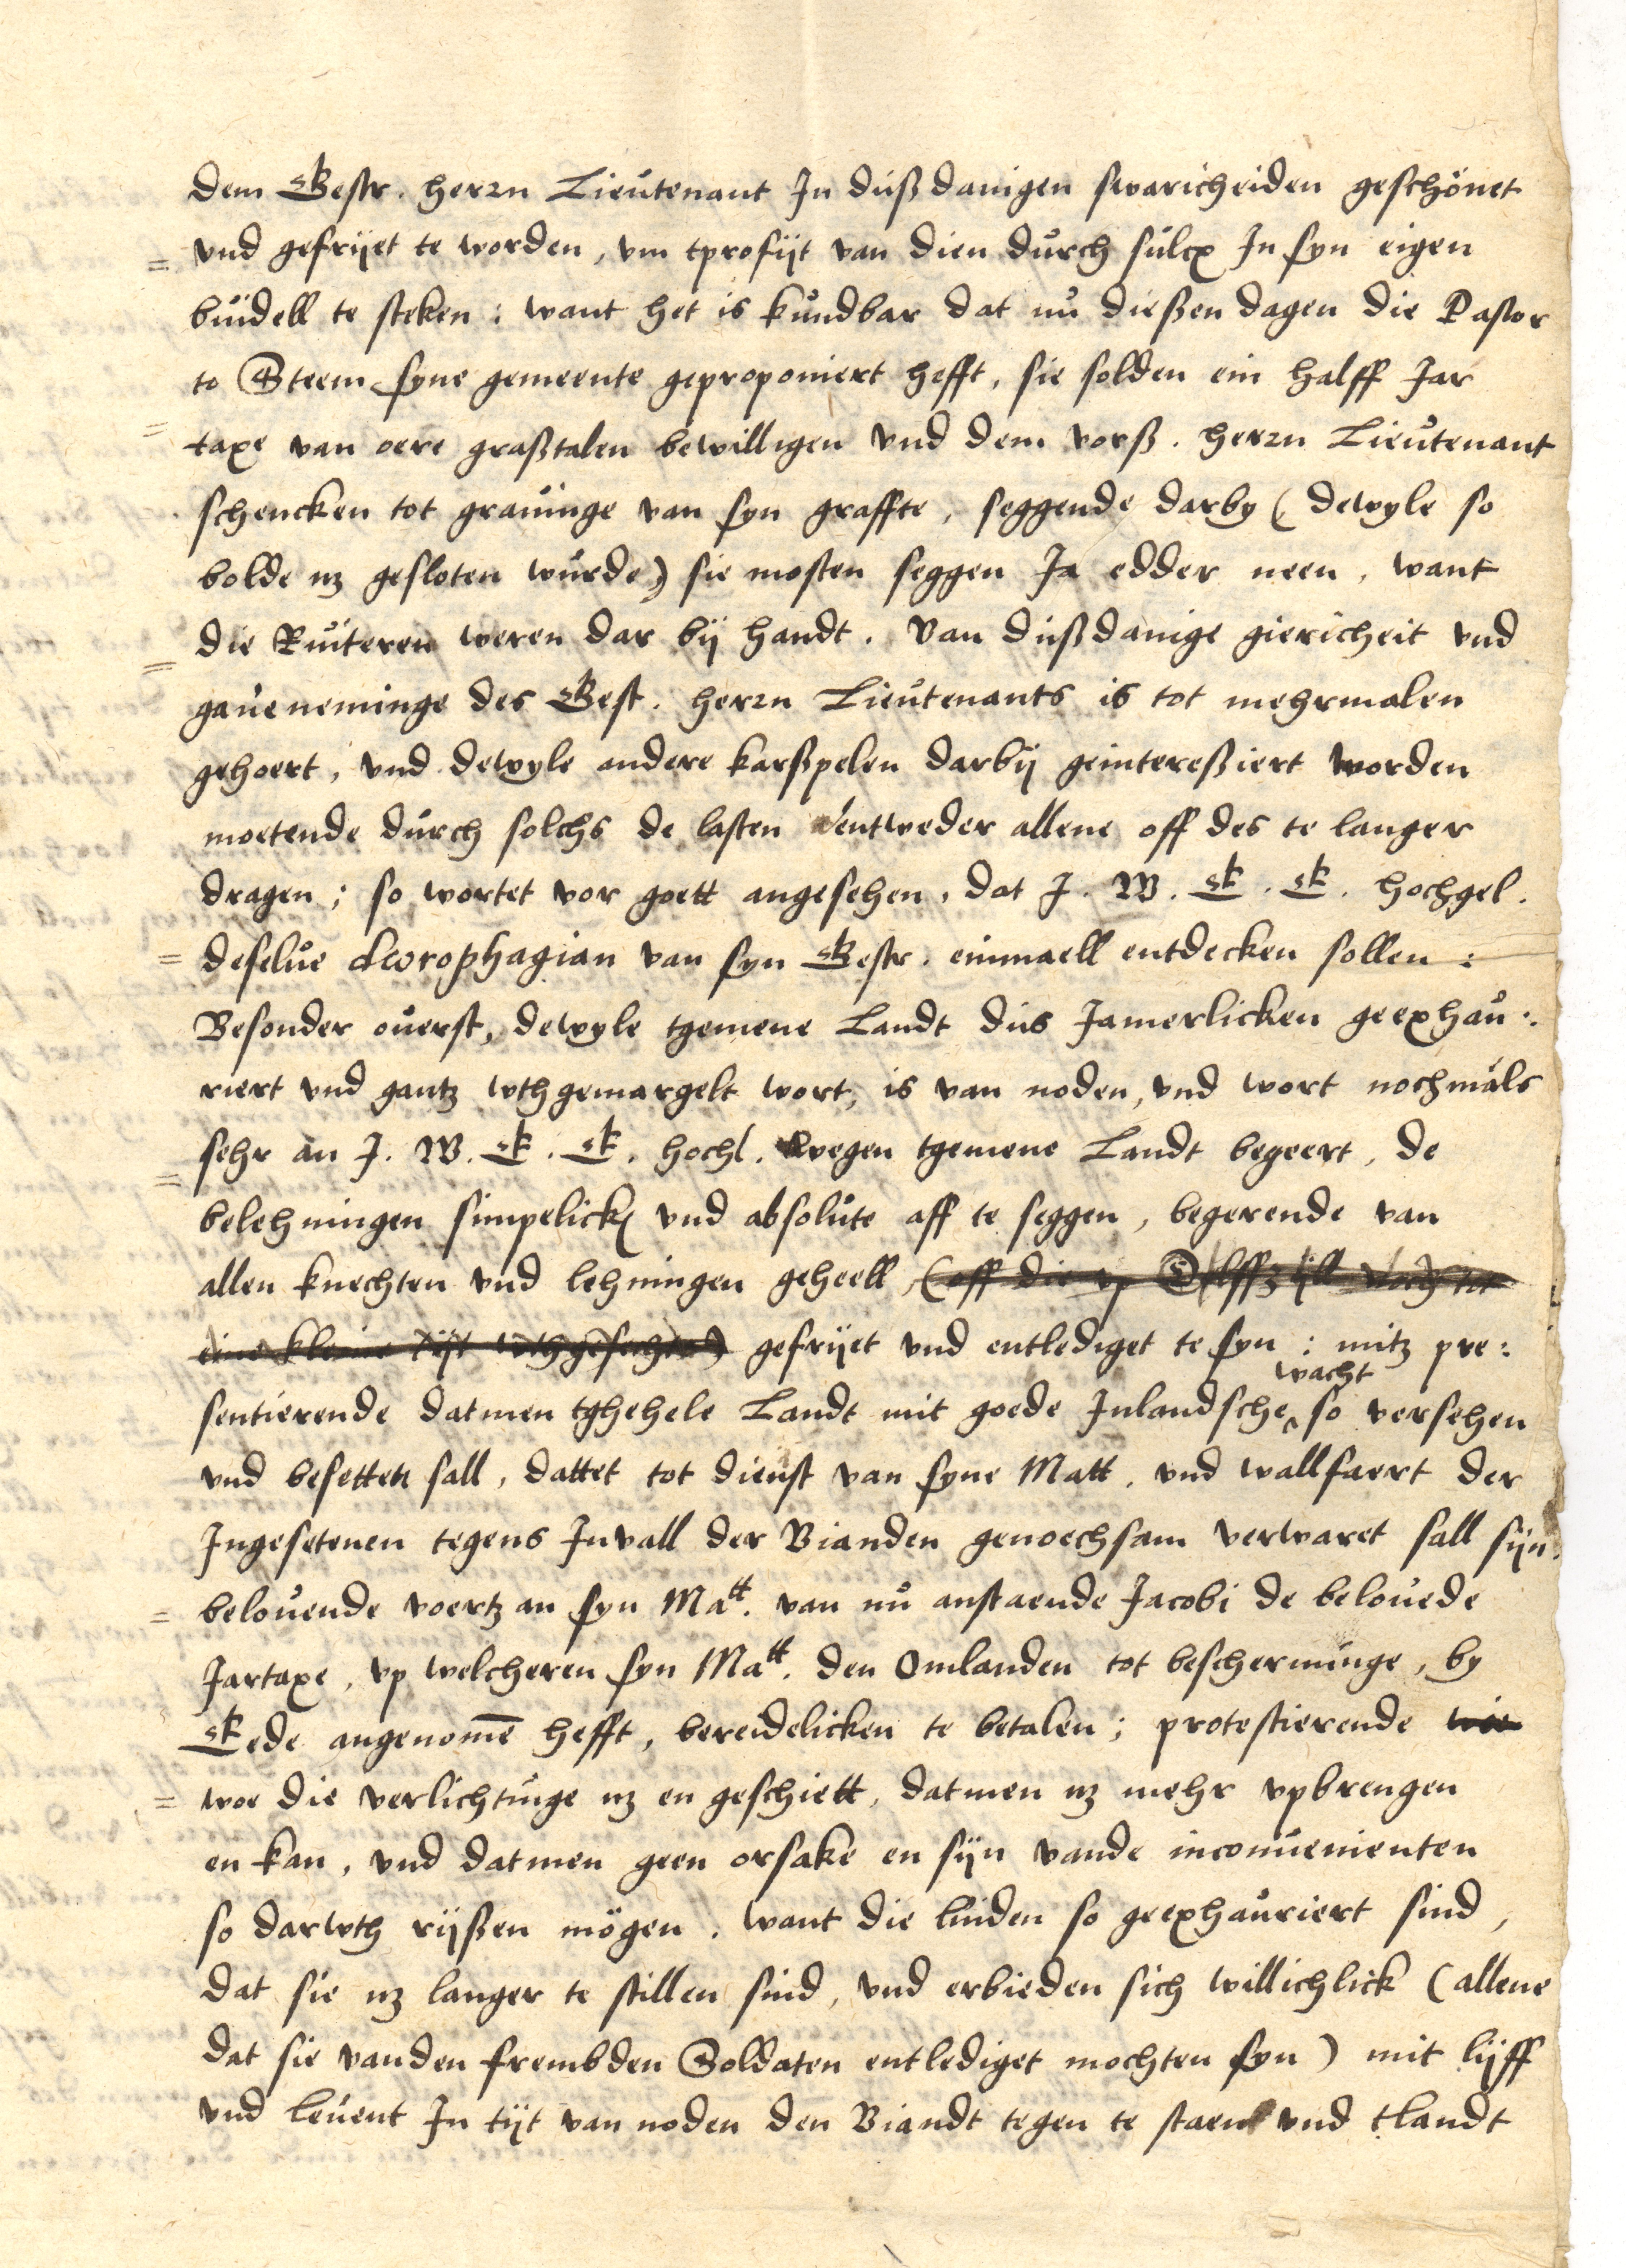 dem Gestr. herrn Lieutenant In dußdanigen swaricheiden geschönet
vnd gefrijet te worden, vm tprofijt van dien durch sulcx In syn eigen
buidell te steken: want het is kundbar dat nu dießen dagen die Pastor
to Steem syne gemeente geproponiert hefft, sie solden ein halff Jar
taxe van oere graßtalen bewilligen vnd dem vorß. herrn Lieutenant
schencken tot grauinge van syn graffte, seggende darby (dewyle so
bolde nz gesloten wurde) sie mosten seggen Ja edder neen, want
die Ruiteren weren dar bij handt. Van dußdanige giericheit vnd
gaueneminge des Gest. herrn Lieutenants is tot mehrmalen
gehoert, vnd dewyle andere karßpelen darbij geintereßiert worden
moetende durch solchs de lasten entweder allene off des te langer
dragen; so wortet vor goett angesehen, dat J. W. G. G. hochgel.
deselue dorophagian van syn Gestr. einmaell entdecken sollen:
Besonder ouerst, dewyle tgemene Landt dus Jamerlicken geexhau:
riert vnd gantz wthgemargelt wort, is van noden, vnd wort nochmals
sehr an J. W. G. G. hochl. wegen tgemene Landt begeert, de
belehningen simpelick vnd absolute aff te seggen, begerende van
allen knechten vnd lehningen geheell (off die vp Delffzijll noch tot
eine kleine tijt wthgesechtet) gefrijet vnd entlediget te syn: mitz pre:
sentierende datmen tghehele Landt mit goede Inlandsche wacht so versehen
vnd besetten sall, dattet tot dienst van syne Matt. vnd wallfaert der
Ingesetenen tegens Invall der Vianden genoechsam verwaret sall sijn:
belouende voertz an syn Matt. van nu anstaende Jacobi de belouede
Jartaxe, vp welcheren syn Matt. den Omlanden tot bescherminge, by
Eede angenomē hefft, bereidelicken te betalen; protestierende wie
woe die verlichtunge nz en geschiett, datmen nz mehr vpbrengen
en kan, vnd datmen geen orsake en sijn vande inconuenienten
so darwth rijßen mögen. want die luiden so geexhauriert sind,
dat sie nz langer te stillen sind, vnd erbieden sich willichlick (allene
dat sie vanden frembden Soldaten entlediget mochten syn) mit lijff
vnd leuent In tijt van noden den Viandt tegen te staen vnd tlandt